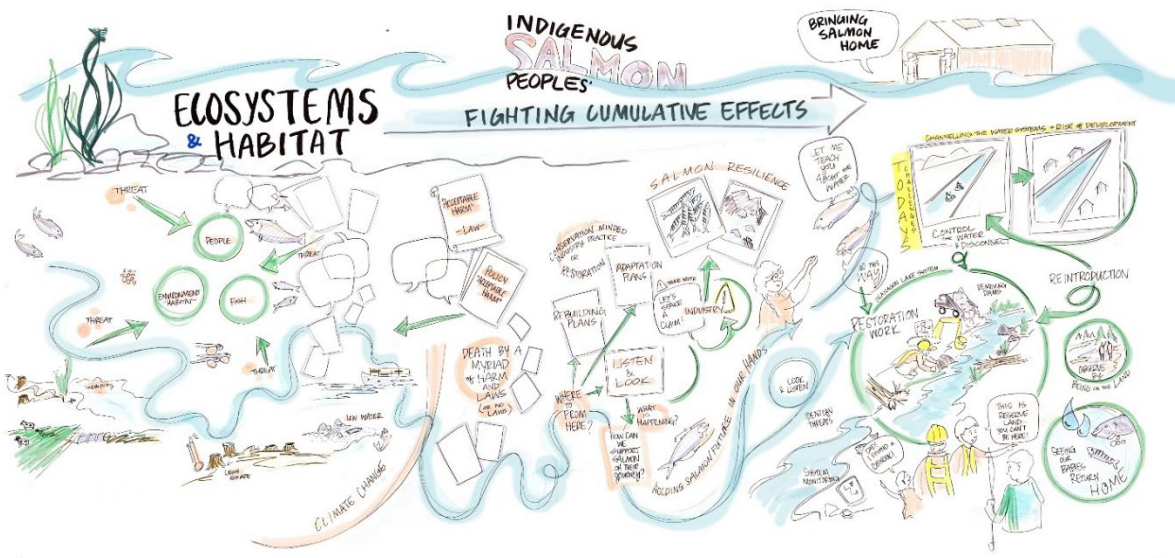 INDIGENOUS
SALMON
PEOPLES'
BRINGING
SALMON
HOME
ECOSYSTEMS
& HABITAT
FIGHTING CUMULATIVE EFFECTS
THREAT
PEOPLE
THREAT
ENVIRONMENT
HABITAT
FISH
THREAT
THREAT
LOW WATER
CLIMATE CHANGE
"ACCEPTABLE
HARM"
-LAW-
POLICY
"ACCEPTABLE
HARM"
DEATH BY A
MYRIAD
OF HARM
AND
LAWS
(OR NO
LAWS)
SALMON RESILIENCE
CONSERVATION MINDED
INDUSTRY PRACTICE
OR
RESTORATION
ADAPTATION
PLANS
REBUILDING
PLANS
LET'S
STAKE
A
CLAIM!
INDUSTRY
LISTEN
&
LOOK
WHERE
TO
FROM
HERE?
WHAT
IS
HAPPENING?
HOW CAN
WE
SUPPORT
SALMON
ON THEIR
JOURNEY?
HOLDING SALMON/FUTURE IN OUR HANDS
LET ME
TEACH
YOU
ABOUT THE
WATER
TODAY'S
CHALLENGES
CHANNELLING THE WATER SYSTEMS + RISK OF DEVELOPMENT
CONTROL
THE WATER
& DISCONNECT
GO THIS
WAY!
OKANAGAN LAKE SYSTEM
REMOVING
DAMS
RESTORATION
WORK
REINTRODUCTION
LOOK
& LISTEN
IDENTIFY
THREATS
SYSTEM
MONITORING
OBSERVE BY
BEING ON THE LAND
THIS IS
RESERVE
LAND
YOU CAN'T
BE HERE!
SEEING
OUR
BABIES
RETURN
HOME